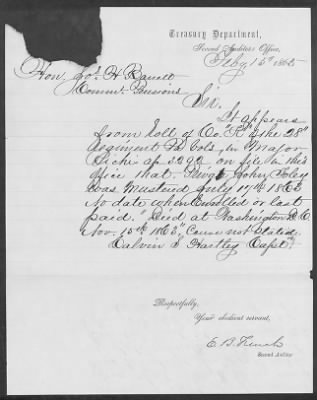 Treasury Department,
Second Auditor's Office,
Feby 15th 1865
Hon. Jos. H Barrett
Commr Pensions
Sir.
It appears
from Roll of Co. "K" the 28"
Regiment Pa Vols, in Major
ap 3292 on file in this
office that. Privt John Foley
was Mustered July 17th 1863
No date when Enrolled or last
paid. "Died at Washington D.C
Nov. 15th 1863," Cause not Stated.
Calvin Hartley Capt.
Respectfully,
Your obedient servant,
E. B. French
Second Auditor